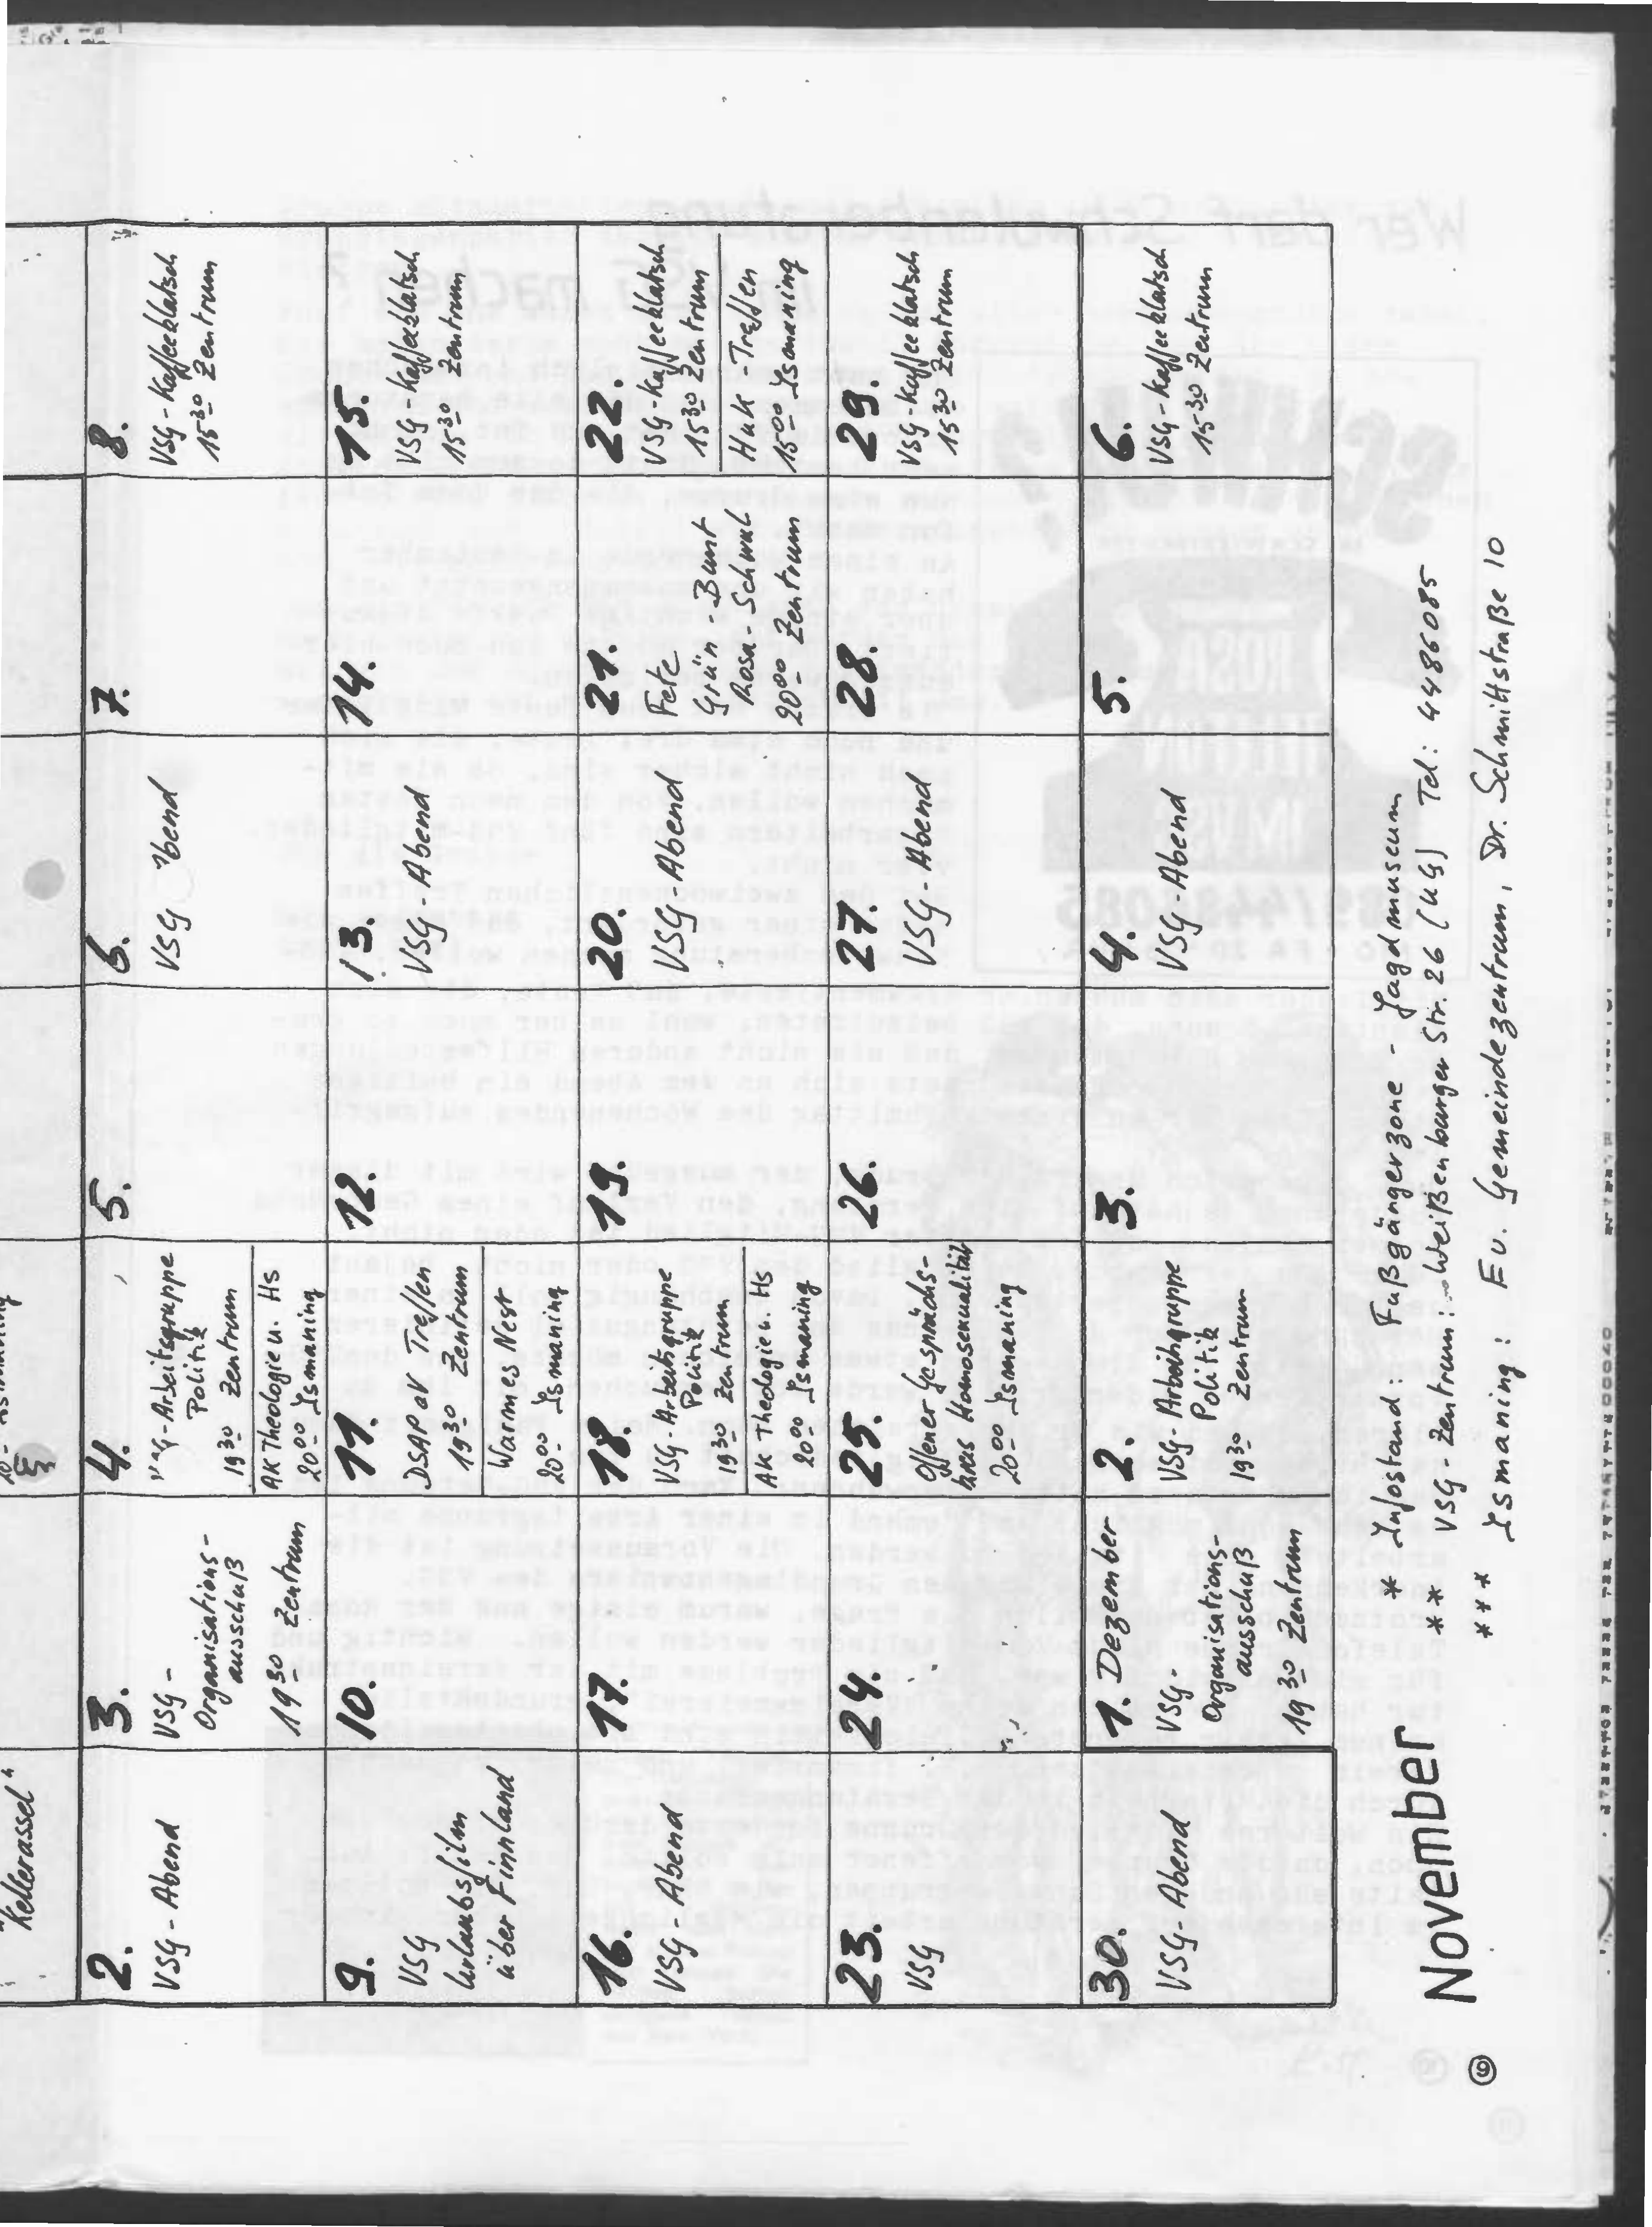 Kellerassel"
2.
VSG - Abend
3.
VSG -
Organisations-
ausschuß
19 30 Zentrum
4.
Arbeitsgruppe
Politik
19 30 Zentrum
AK Theologie u. Hs
20 00 Ismaning
5.
6.
VSG
7.
8.
VSG - Kaffeeklatsch
15 30 Zentrum
9.
VSG
Urlaubsfilm
über Finnland
10.
11.
DSAP oV Treffen
19 30 Zentrum
Warmes Nest
20 00 Ismaning
12.
13.
VSG - Abend
14.
15.
VSG - Kaffeeklatsch
15 30 Zentrum
16.
VSG - Abend
17.
18.
VSG - Arbeitsgruppe
Politik
19 30 Zentrum
AK Theologie u. Hs
20 00 Ismaning
19.
20.
VSG - Abend
21.
Fete
Grün - Bunt
Rosa - Schwul
20 00 Zentrum
22.
VSG - Kaffeeklatsch
15 30 Zentrum
HuK - Treffen
15 00 Ismaning
23.
VSG
24.
25.
Offener Gesprächs-
kreis Homosexualität
20 00 Ismaning
26.
27.
VSG - Abend
28.
29.
VSG - Kaffeeklatsch
15 30 Zentrum
30.
VSG - Abend
1. Dezember
VSG -
Organisitions-
ausschuß
19 30 Zentrum
2.
VSG - Arbeitsgruppe
Politik
19 30 Zentrum
3.
4.
VSG - Abend
5.
6.
VSG - Kaffeeklatsch
15 30 Zentrum
November
* Infostand : Fußgängerzone - Jagdmuseum
** VSG - Zentrum: Weißenburger Str. 26 (UG) Tel: 4486085
*** Ismaning : Ev. Gemeindezentrum, Dr. Schmittstraße 10
9